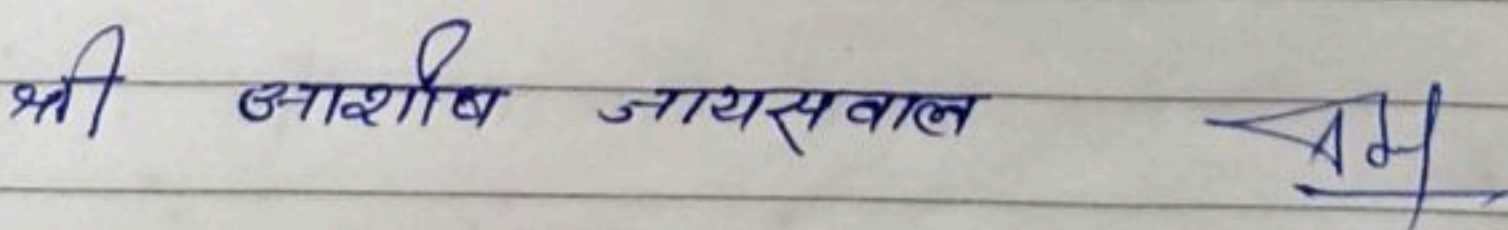 श्री आशीष जायसवाल